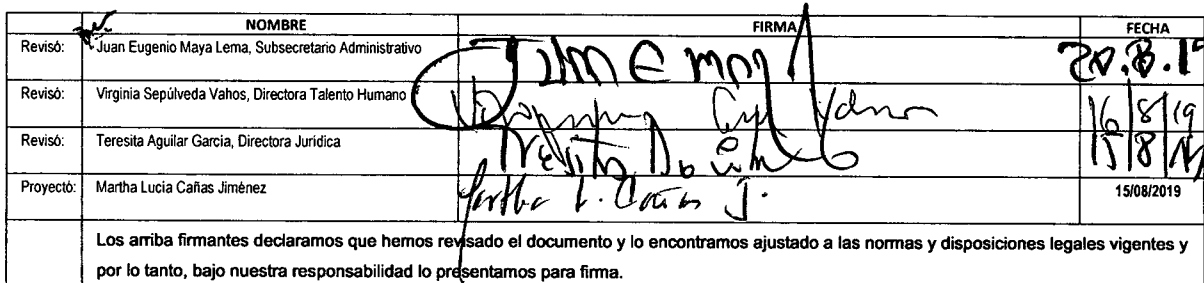 NOMBRE FIRMA FECHA
Revisó: Juan Eugenio Maya Lema, Subsecretario Administrativo 20.8.19
Revisó: Virginia Sepúlveda Vahos, Directora Talento Humano 16/8/19
Revisó: Teresita Aguilar García, Directora Jurídica
Proyectó: Martha Lucia Cañas Jiménez Martha L. Cañas J. 15/08/2019
Los arriba firmantes declaramos que hemos revisado el documento y lo encontramos ajustado a las normas y disposiciones legales vigentes y
por lo tanto, bajo nuestra responsabilidad lo presentamos para firma.